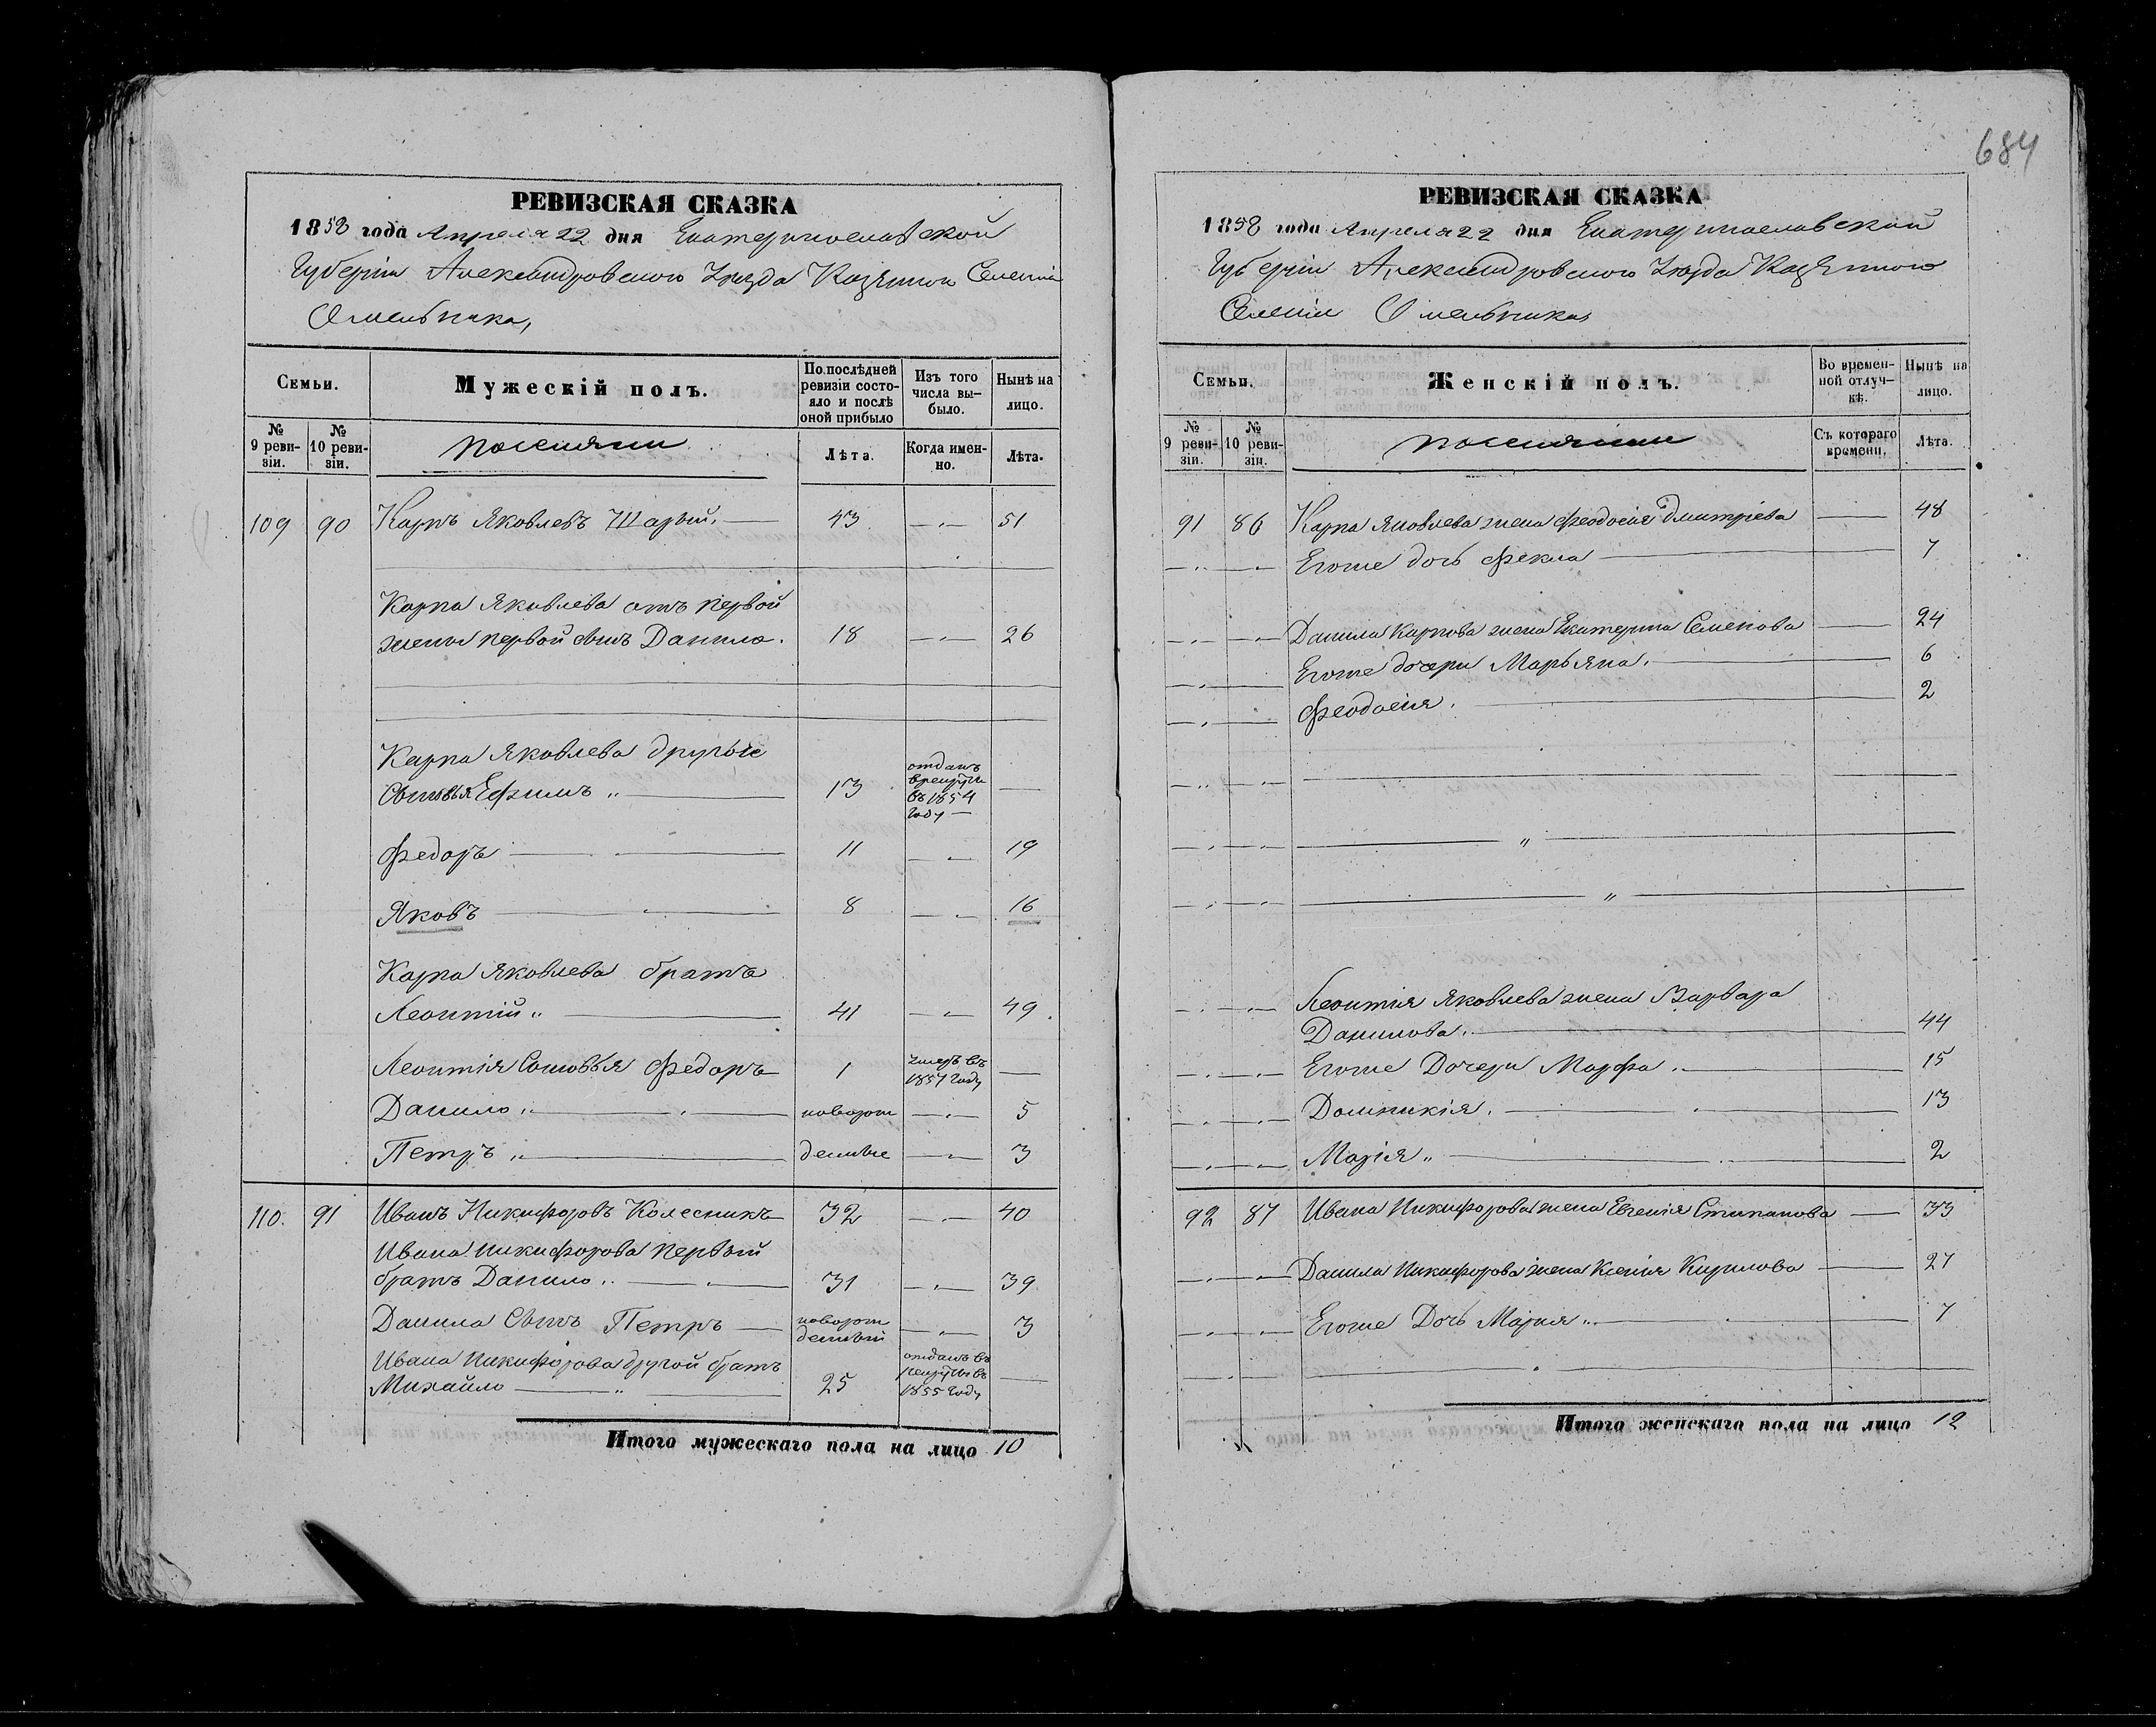 684
РЕВИЗСКАЯ СКАЗКА
1858 года Апреля 22 дня Екатеринославской
Губернiи Александровского Уезда Казенного Селенiя
Омельника,
Семьи.
Мужескiй полъ.
По послѣдней ревизiи состояло и послѣ оной прибыло
Изъ того числа выбыло.
Нынѣ на лицо.
№ 9 ревизiи.
№ 10 ревизiи.
поселяни
Лѣта.
Когда именно.
Лѣта.
109 90 Карпъ Яковлевъ Шарый. 43 51
Карпа Яковлева отъ первой
жены первой сынъ Данило. 18 26
Карпа Яковлева другые
Сыновья Ефимъ 13 отданъ в рекруты въ 1854 году
Федоръ 11 19
Яковъ 8 16
Карпа Яковлева братъ
Леонтiй 41 49.
Леонтiя Сыновья Федоръ 1 умеръ въ 1857 году
Данило новорож 5
Петръ денные 3
110. 91 Иванъ Никифоровъ Колесникъ 32 40
Ивана Никифорова первый
братъ Данило 31 39
Данила Сынъ Петръ новорожденный 3
Ивана Никифорова другой братъ
Михайло 25 отданъ въ рекруты въ 1855 году
Итого мужескаго пола на лицо 10
РЕВИЗСКАЯ СКАЗКА
1858 года Апреля 22 дня Екатеринославской
Губернiи Александровского Уезда Казенного
Селенiя Омельника
Семьи.
Женскiй полъ.
Во временной отлучкѣ.
Нынѣ на лицо.
№ 9 ревизiи.
№ 10 ревизiи.
поселянки
Съ котораго времени.
Лѣта.
91 86 Карпа Яковлева жена Феодосiя Дмитрiева 48
Егоже дочь Фекла 7
Данила Карпова жена Екатерина Семенова 24
Егоже дочери Марьяна. 6
Феодосiя. 2
Леонтiя Яковлева жена Варвара
Данилова. 44
Егоже Дочери Марфа. 15
Домникiя. 13
Марiя 2
92 87 Ивана Никифорова жена Евгенiя Стипанова 33
Данила Никифорова жена Ксенiя Кирилова 27
Егоже Дочь Мария 7
Итого женскаго пола на лицо 12